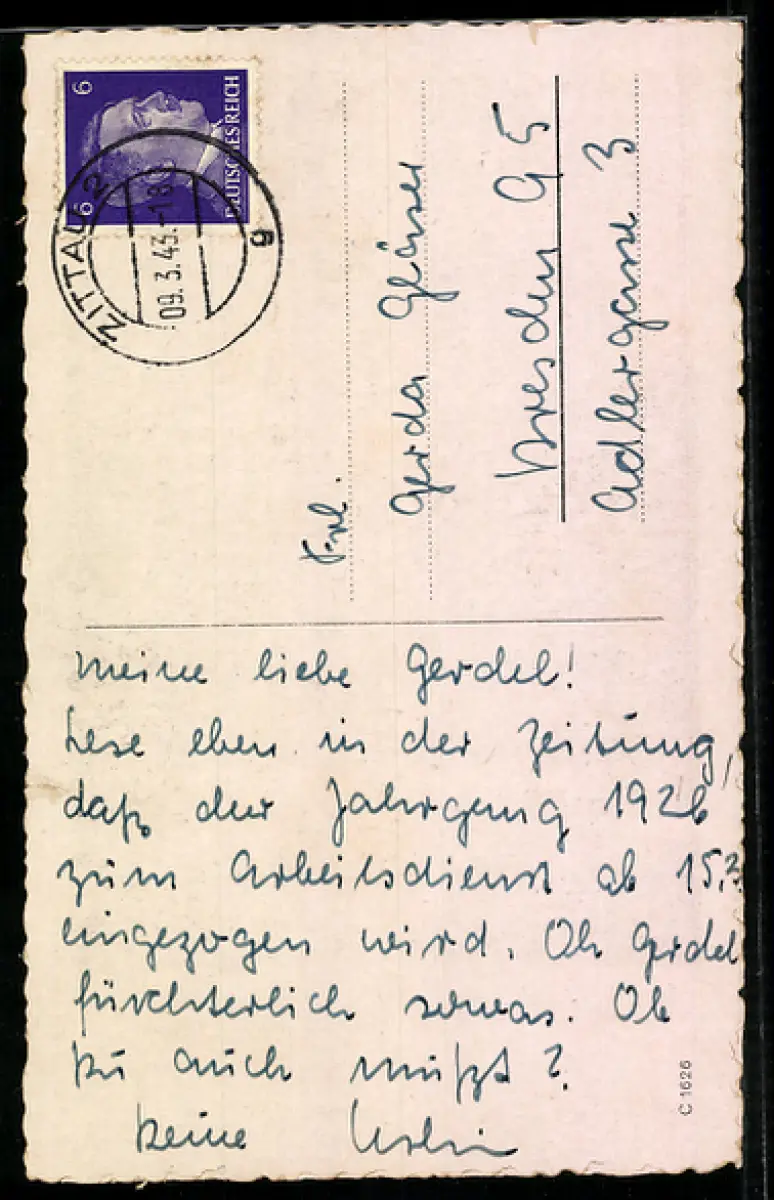 6 6
DEUTSCHES REICH
ZITTAU 2
09.3.43.-18
g
Frl.
Gerda Gläser
Dresden A 5
Adlergasse 3
Meine liebe Gerdel!
Lese eben in der Zeitung,
daß der Jahrgang 1926
zum Arbeitsdienst ab 15.
eingezogen wird. Oh Gerdel
fürchterlich sowas. Ob
Du auch mußt?
Deine
C 1626